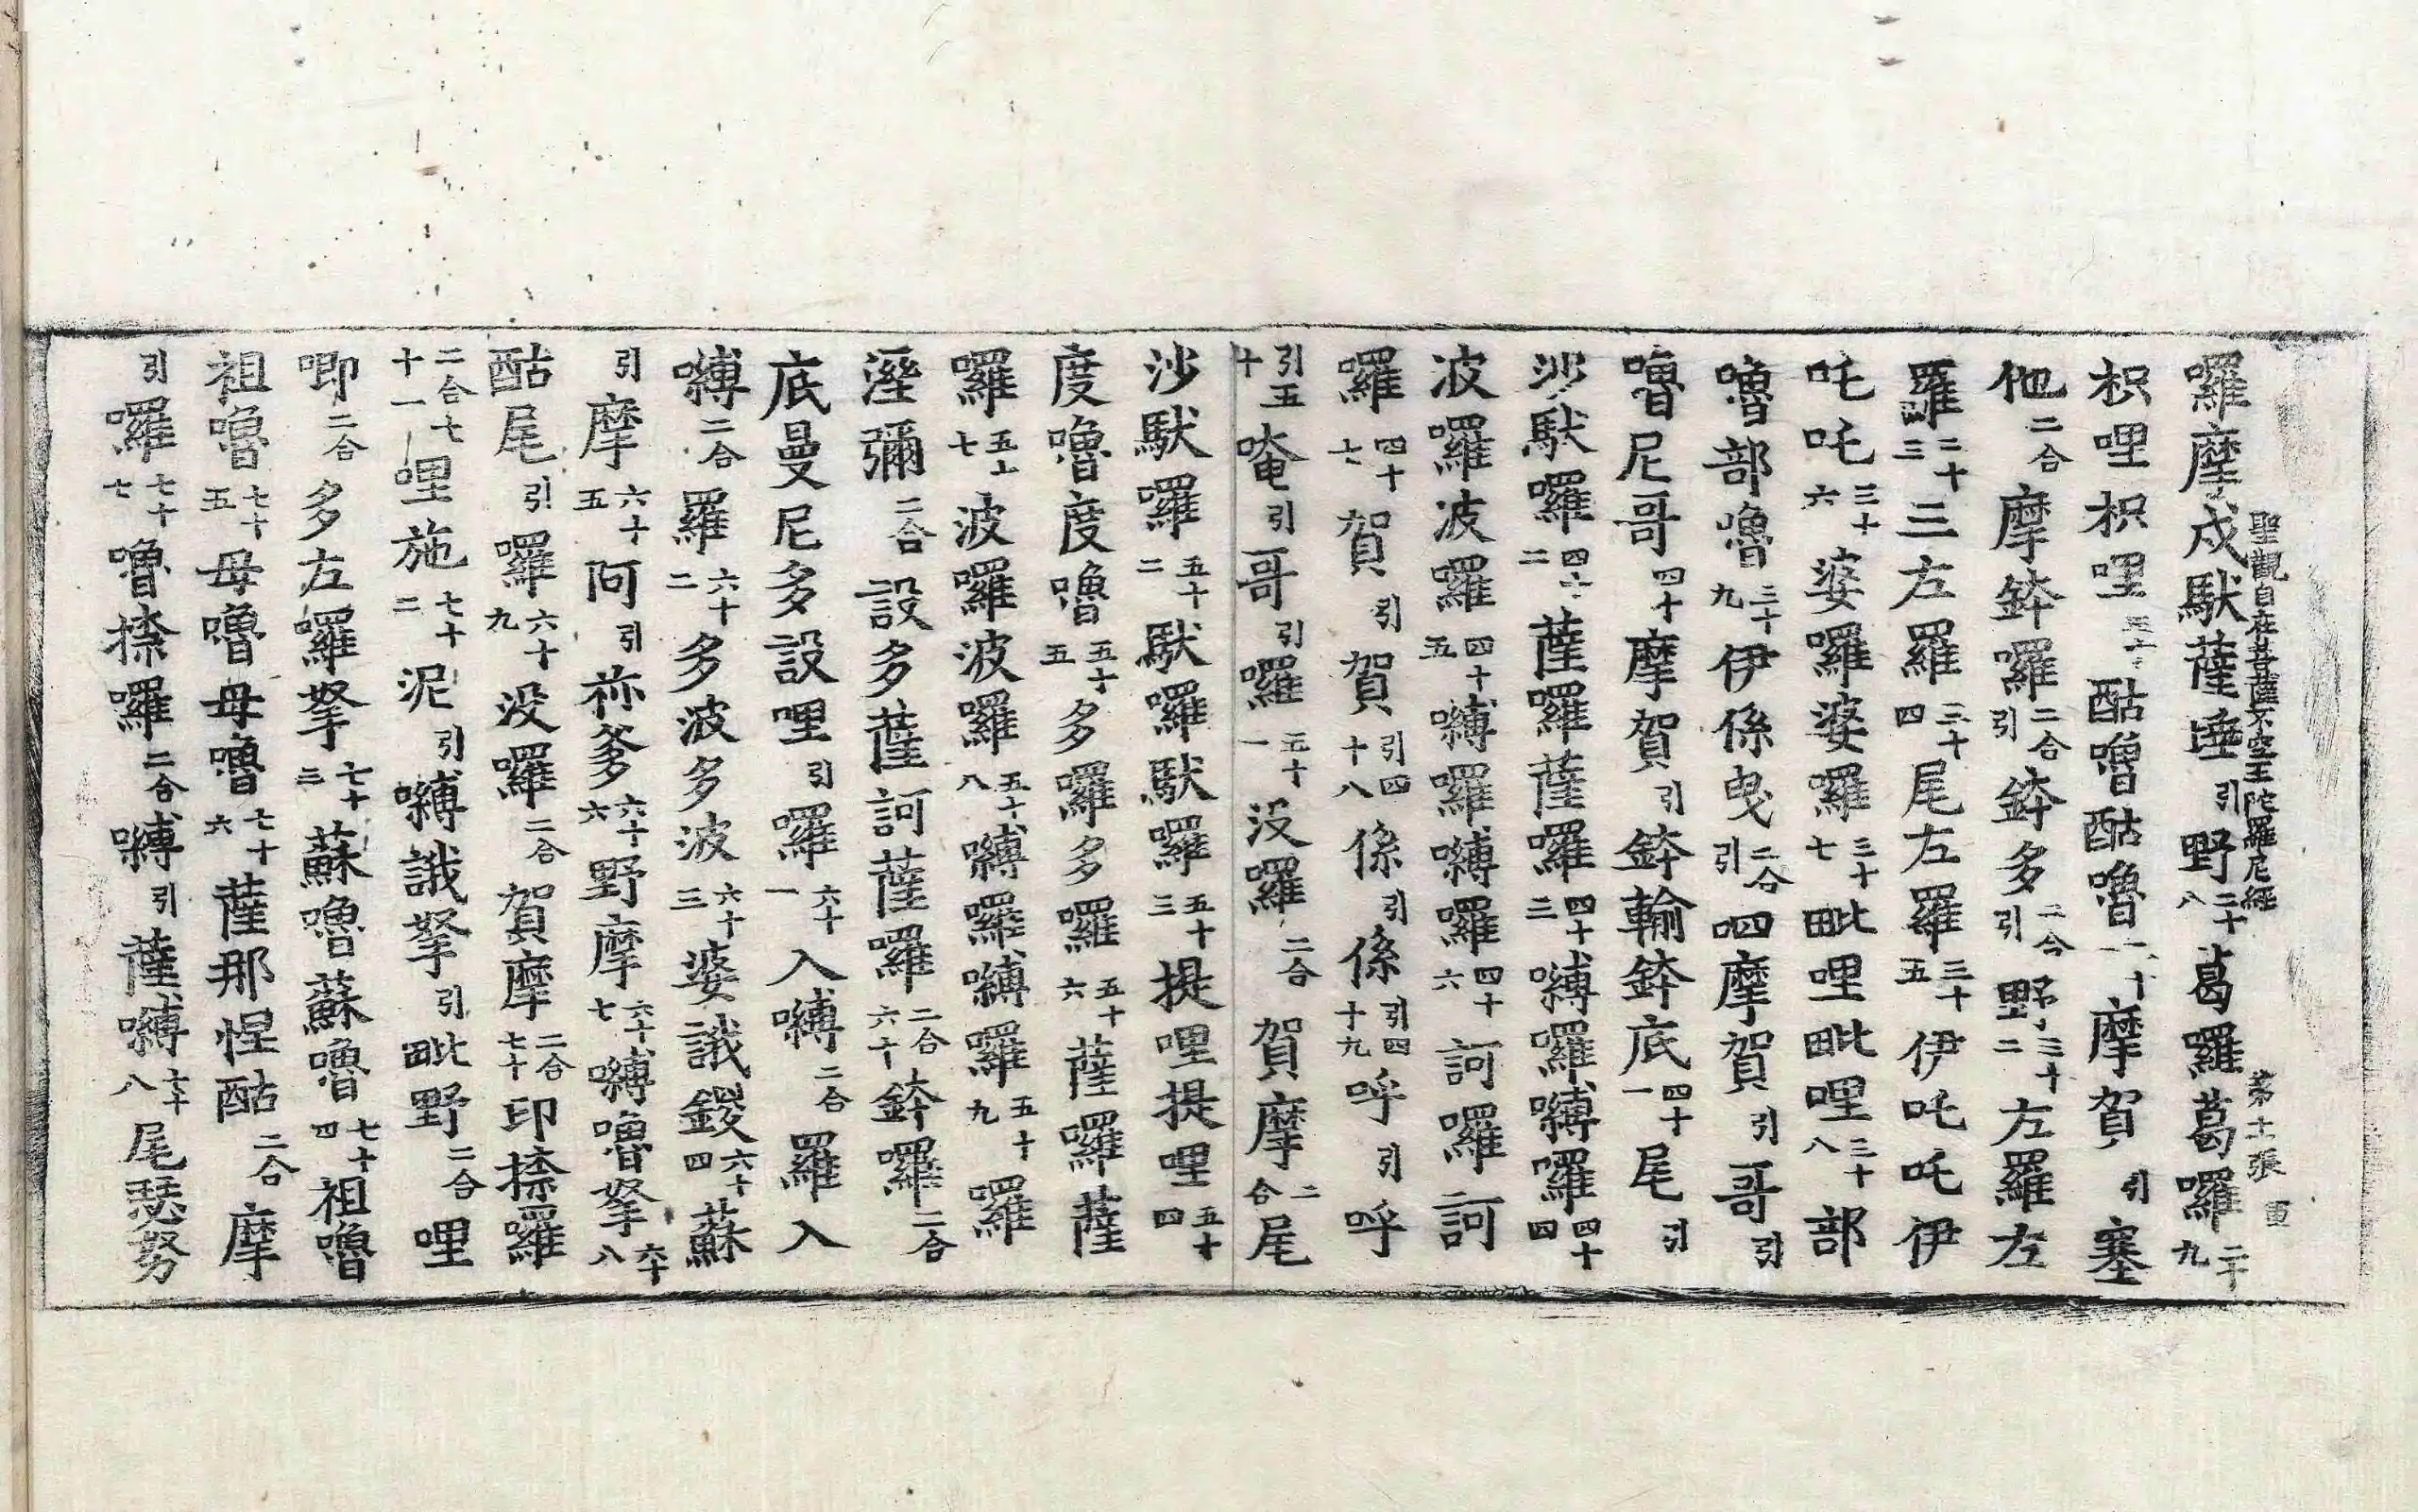 聖觀自在菩薩不空王陀羅尼經 第十張
囉摩戍馱薩埵引野二十八葛羅葛囉二十九
枳哩枳哩三十酤嚕酤嚕三十一摩賀引塞
他二合摩鉢囉二合引鉢多二合引野三十二左羅左
羅三十三三左羅三十四尾左羅三十五伊吒吒伊
吒吒三十六婆囉婆囉三十七毗哩毗哩三十八部
嚕部嚕三十九伊係曳二合引呬摩賀引哥引
嚕尼哥四十摩賀引鉢輸鉢底四十一尾引
沙馱囉四十二薩囉薩囉四十三嚩囉嚩囉四十四
波囉波囉四十五嚩囉嚩囉四十六訶囉訶
囉四十七賀引賀引四十八係引係引四十九呼引呼
引五十唵引哥引囉五十一沒囉二合賀摩二合尾
沙馱囉五十二馱囉馱囉五十三提哩提哩五十四
度嚕度嚕五十五多囉多囉五十六薩囉薩
囉五十七波囉波囉五十八嚩囉嚩囉五十九囉
溼彌二合設多薩訶薩囉二合六十鉢囉二合
底曼尼多設哩引囉六十一入嚩二合羅入
嚩二合羅六十二多波多波六十三婆誐鑁六十四蘇
引摩六十五阿引祢爹六十六野摩六十七嚩嚕拏六十八
酤尾引囉六十九没囉二合賀摩二合七十印捺囉
二合七十一哩施七十二泥引嚩誐拏引毗野二合哩
唧二合多左囉拏七十三蘇嚕蘇嚕七十四祖嚕
祖嚕七十五母嚕母嚕七十六薩那惺酤二合摩
引囉七十七嚕捺囉二合嚩引薩嚩七十八尾瑟努